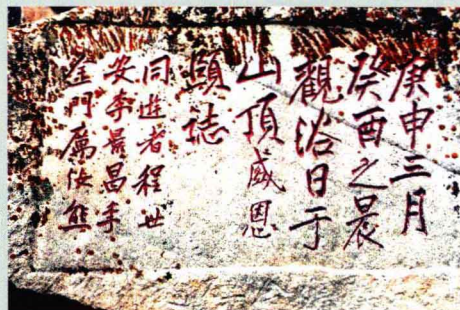 庚申三月
癸酉之晨
觀浴日于
山頂威恩
頤誌
同遊者程世
安李景昌手
奎門厲汝熊